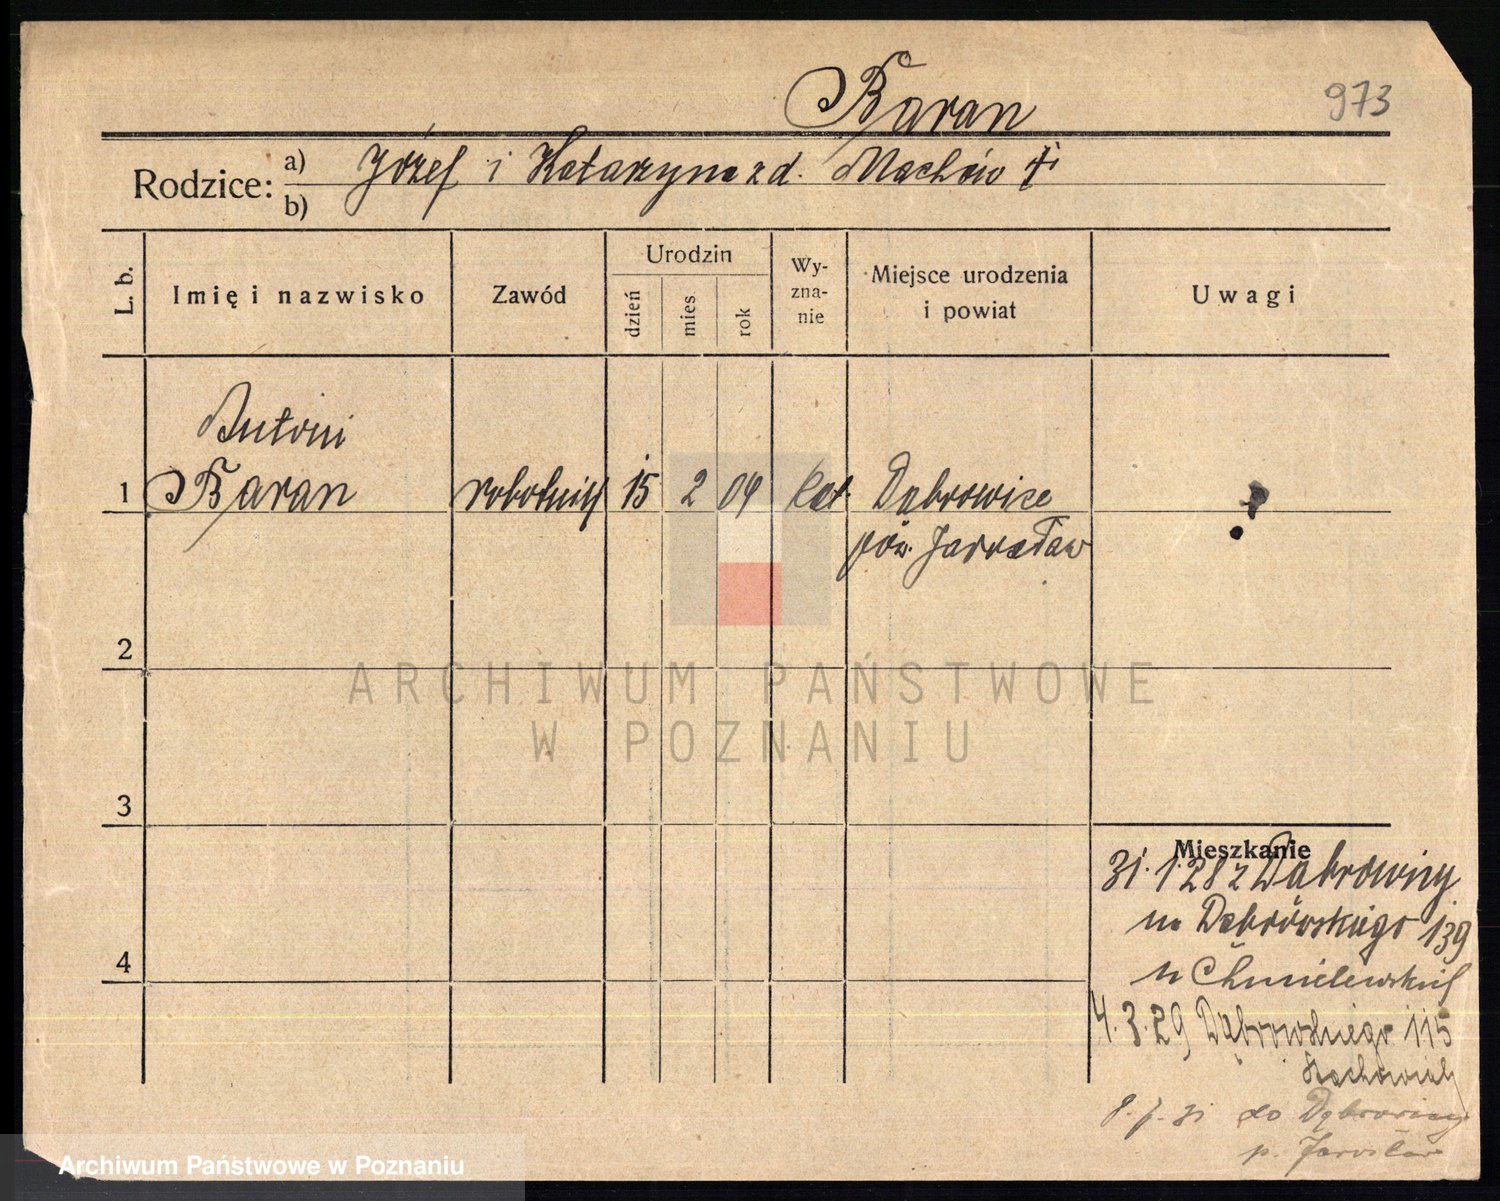 Baran
973
Rodzice: a) Józef i Katarzyna z d. Machów
b)
L. b.
Imię i nazwisko
Zawód
Urodzin
dzień
mies
rok
Wy-
zna-
nie
Miejsce urodzenia
i powiat
Uwagi
Antoni
1 Baran robotnik 15 2 09 kat. Dąbrowice
pow. Jarosław
2
ARCHIWUM PAŃSTWOWE
W POZNANIU
3
4
Mieszkanie
31.1.28 z Dąbrowicy
Dąbrowskiego 139
u Chmielewskich
4.3.29 Dąbrowskiego 115
Stachowiak
8.7.31 do Dąbrowicy
p. Jarosław
Archiwum Państwowe w Poznaniu